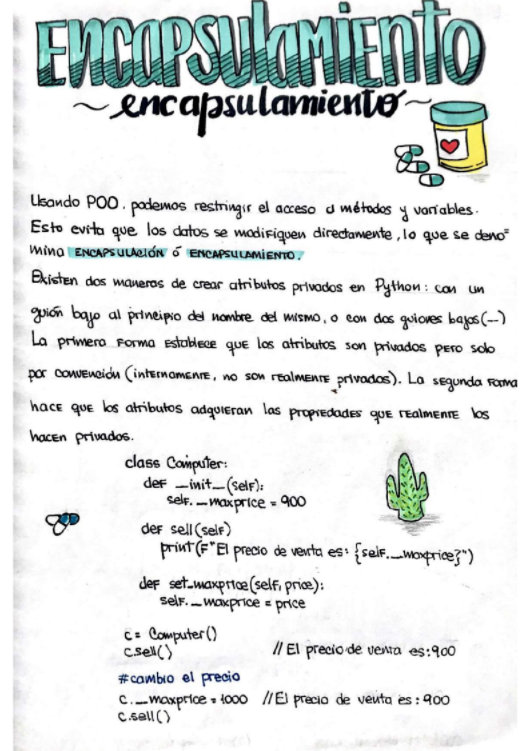 ENCAPSULAMIENTO
~encapsulamiento~
Usando POO, podemos restringir el acceso a métodos y variables.
Esto evita que los datos se modifiquen directamente, lo que se deno=
mina ENCAPSULACIÓN ó ENCAPSULAMIENTO.
Existen dos maneras de crear atributos privados en Python: con un
guión bajo al principio del nombre del mismo, o con dos guiones bajos(__)
La primera Forma establece que los atributos son privados pero solo
por convención (internamente, no son realmente privados). La segunda Forma
hace que los atributos adquieran las propiedades que realmente los
hacen privados.
class Computer:
def __init__(self):
self.__maxprice = 900
def sell(self)
print(F"El precio de venta es: {self.__maxprice}")
def set_maxprice(self, price):
self.__maxprice = price
c = Computer()
c.sell() //El precio de venta es:900
#cambio el precio
c.__maxprice = 1000 //El precio de venta es: 900
c.sell()